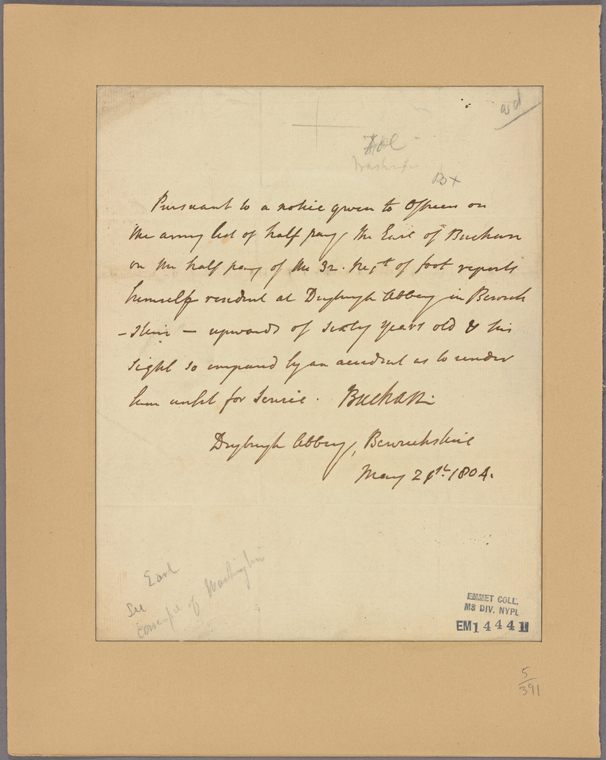 Pursuant to a notice given to Officers on
the army list of half pay, the Earl of Buchan
on the half pay of the 32. Regt of foot reports
himself resident at Dryburgh Abbey in Berwick
-shire - upwards of sixty years old & his
sight so impaired by an accident as to render
him unfit for Service. Buchan
Dryburgh Abbey, Berwickshire
May 21st 1804.
Earl
See
of Washington
EMMET COLL.
MS DIV. NYPL
EM14441
5
391